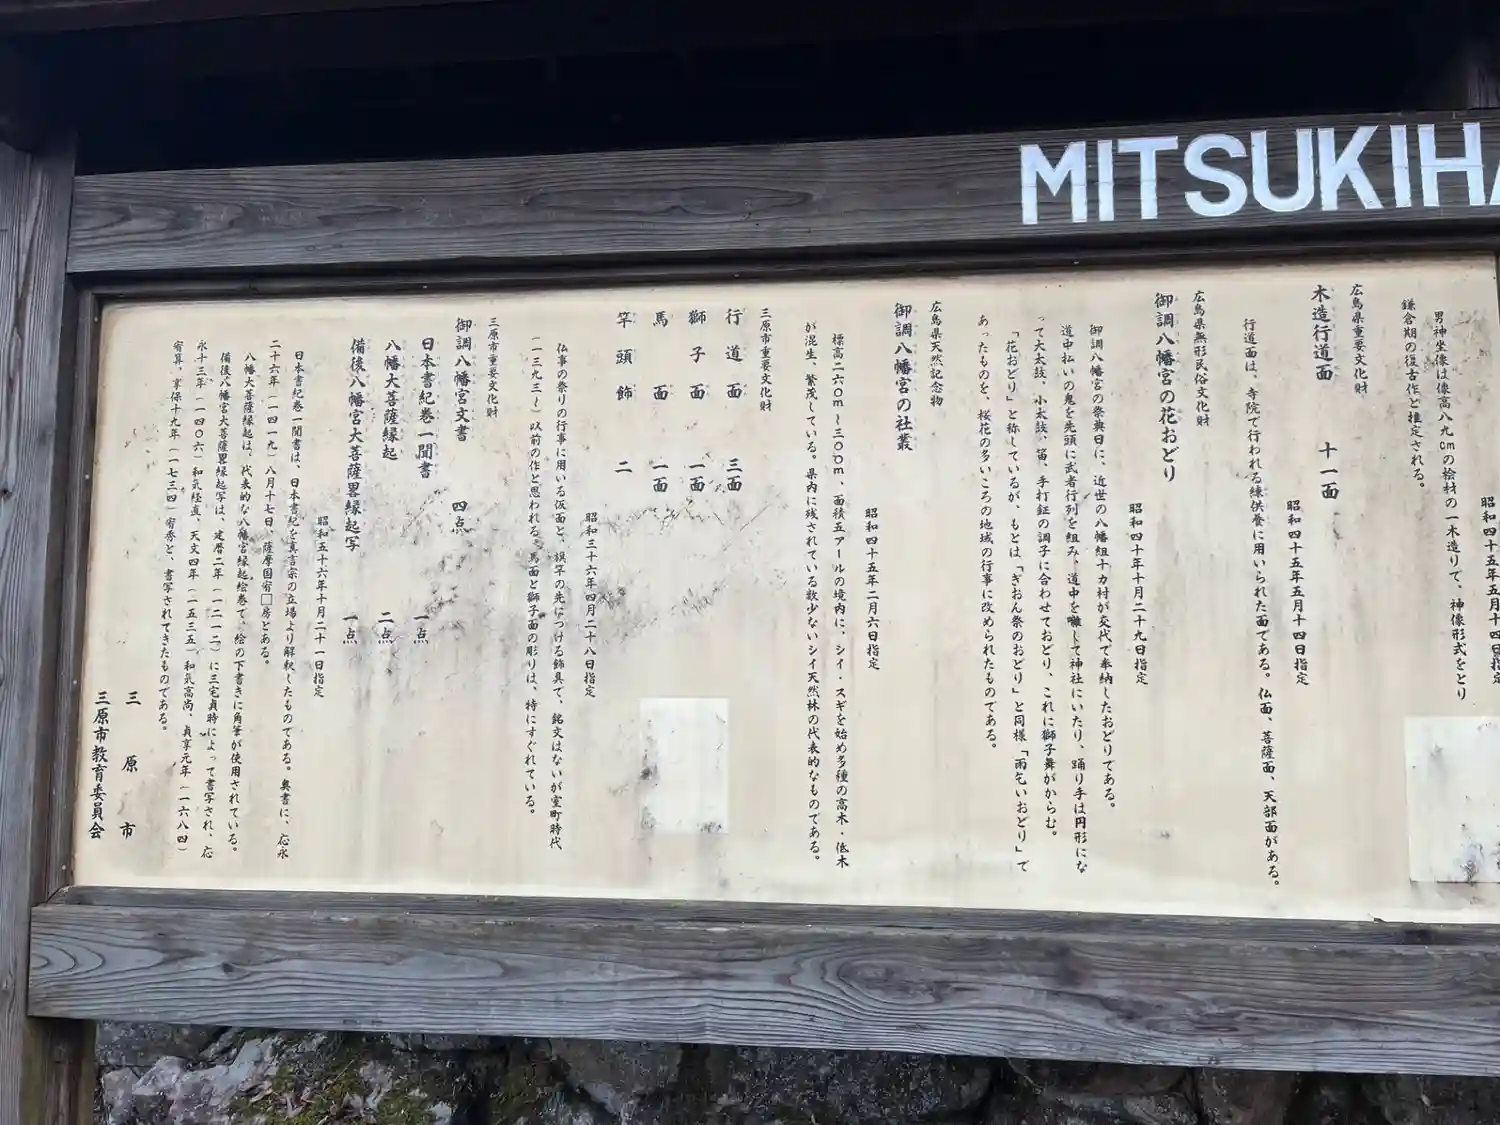 MITSUKIHA
昭和四十五年五月十四日指定
男神坐像は像高八九cmの桧材の一木造りで、神像形式をとり
鎌倉期の復古作と推定される。
広島県重要文化財
木造行道面 十一面
昭和四十五年五月十四日指定
行道面は、寺院で行われる練供養に用いられた面である。仏面、菩薩面、天部面がある。
広島県無形民俗文化財
御調八幡宮の花おどり
昭和四十年十月二十九日指定
御調八幡宮の祭典日に、近世の八幡組十カ村が交代で奉納したおどりである。
道中払いの鬼を先頭に武者行列を組み、道中を囃して神社にいたり、踊り手は円形にな
って大太鼓、小太鼓、笛、手打鉦の調子に合わせておどり、これに獅子舞がからむ。
「花おどり」と称しているが、もとは「ぎおん祭のおどり」と同様「雨乞いおどり」で
あったものを、桜花の多いころの地域の行事に改められたものである。
広島県天然記念物
御調八幡宮の社叢
昭和四十五年二月六日指定
標高二六〇m～三〇〇m、面積五アールの境内に、シイ・スギを始め多種の高木・低木
が混生、繁茂している。県内に残されている数少ないシイ天然林の代表的なものである。
三原市重要文化財
行道面 三面
獅子面 一面
馬面 一面
竿頭飾 二
昭和三十六年四月二十八日指定
仏事の祭りの行事に用いる仮面と、旗竿の先につける飾具で、銘文はないが室町時代
（一三九三～）以前の作と思われる。馬面と獅子面の彫りは、特にすぐれている。
三原市重要文化財
御調八幡宮文書 四点
日本書紀巻一聞書 一点
八幡大菩薩縁起 二点
備後八幡宮大菩薩畧縁起写 一点
昭和五十六年十月二十一日指定
日本書紀巻一聞書は、日本書紀を真言宗の立場より解釈したものである。奥書に、応永
二十六年（一四一九）八月十七日、薩摩国宥□房とある。
八幡大菩薩縁起は、代表的な八幡宮縁起絵巻で、絵の下書きに角筆が使用されている。
備後八幡宮大菩薩畧縁起写は、建暦二年（一二一二）に三宅貞時によって書写され、応
永十三年（一四〇六）和気経直、天文四年（一五三五）和気高尚、貞享元年（一六八四）
宥算、享保十九年（一七三四）宥秀と、書写されてきたものである。
三原市
三原市教育委員会